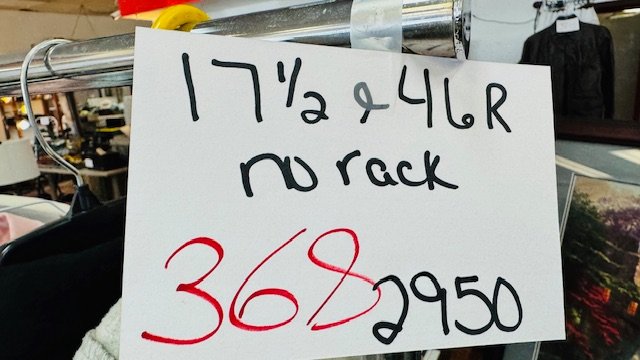 17½ & 46R
no rack
368 2950